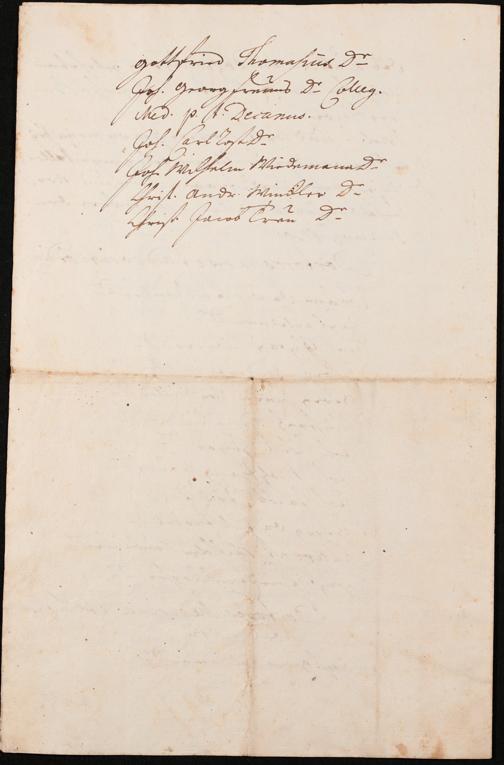 Gottfried Thomasius Dr
Joh. Georg Dr Colleg.
Med. p. t. Decanus.
Joh. Carl Dr
Joh. Wilhelm Wiedemann Dr
Christ. Andr. Winckler Dr
Christ. Jacob Treu Dr